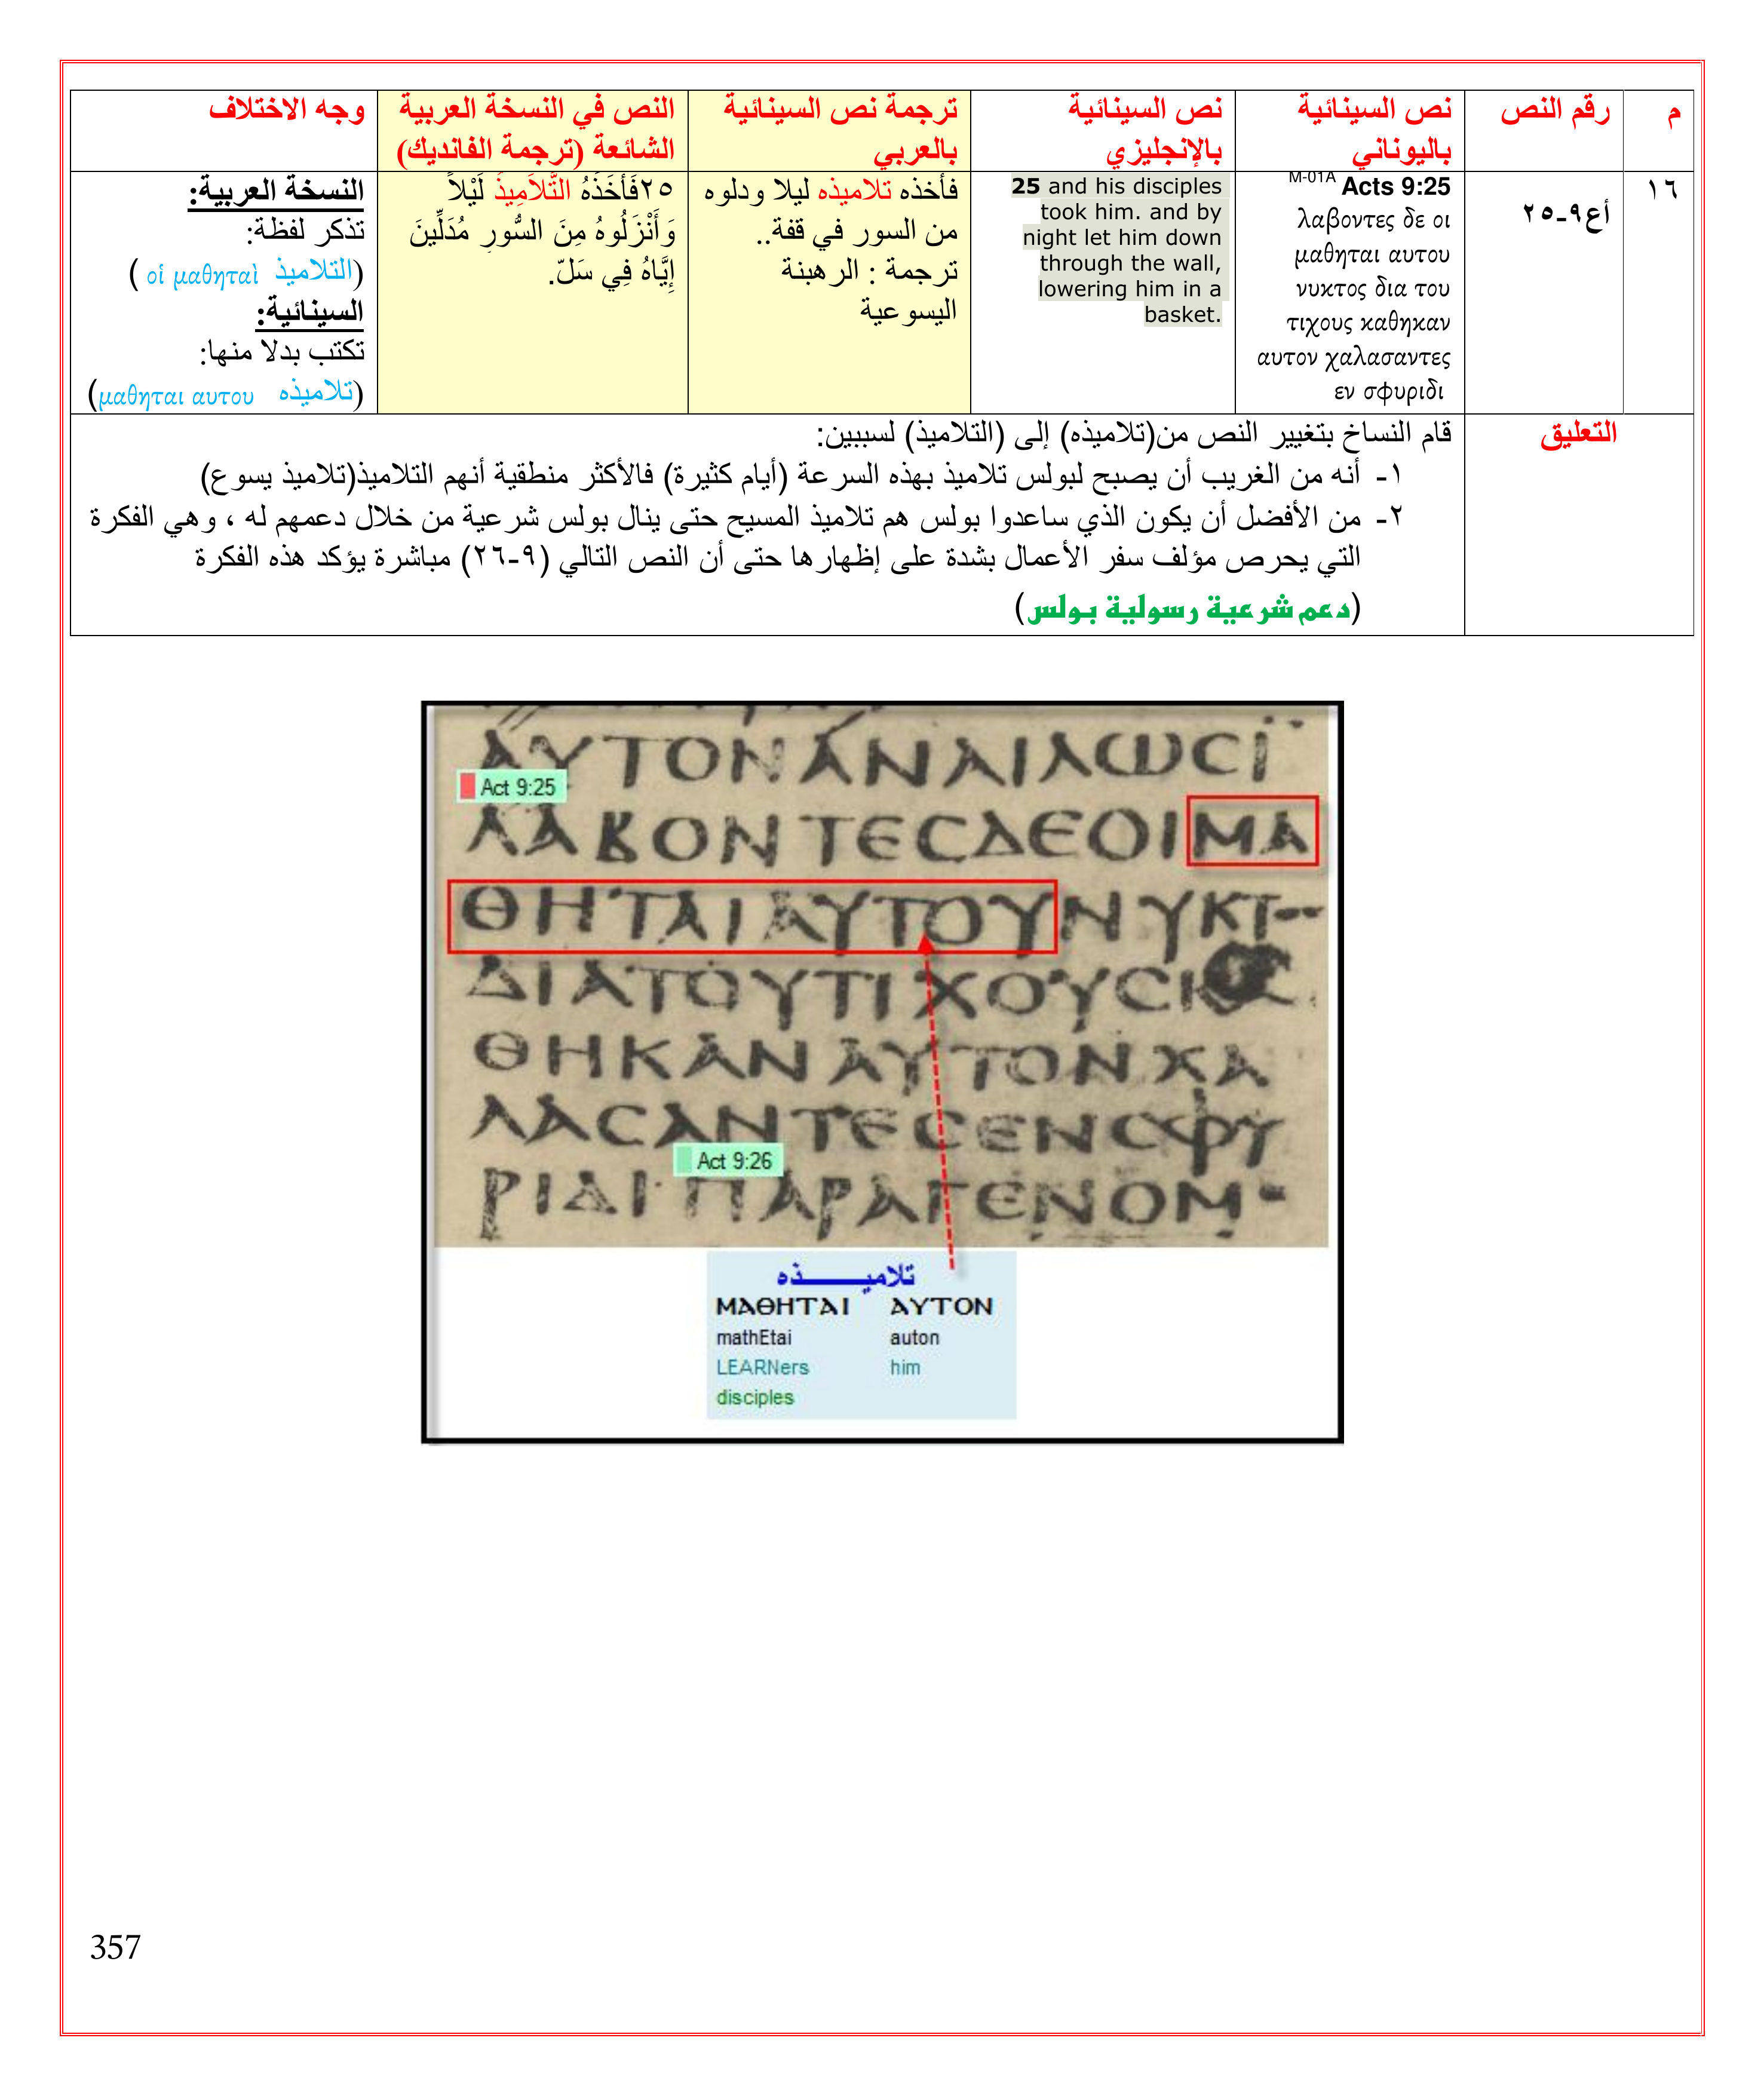 م
رقم النص
نص السينائية
باليوناني
نص السينائية
بالإنجليزي
ترجمة نص السينائية
بالعربي
النص في النسخة العربية
الشائعة (ترجمة الفانديك)
وجه الاختلاف
١٦
أع٩-٢٥
M-01A Acts 9:25
λαβοντες δε οι
μαθηται αυτου
νυκτος δια του
τιχους καθηκαν
αυτον χαλασαντες
εν σφυριδι
25 and his disciples
took him. and by
night let him down
through the wall,
lowering him in a
basket.
فأخذه تلاميذه ليلا ودلوه
من السور في قفة..
ترجمة : الرهبنة
اليسوعية
٢٥فَأَخَذَهُ التَّلاَمِيذُ لَيْلاً
وَأَنْزَلُوهُ مِنَ السُّورِ مُدَلِّينَ
إِيَّاهُ فِي سَلّ.
النسخة العربية:
تذكر لفظة:
(التلاميذ οἱ μαθηταὶ )
السينائية:
تكتب بدلا منها:
(تلاميذه μαθηται αυτου)
التعليق
قام النساخ بتغيير النص من(تلاميذه) إلى (التلاميذ) لسببين:
١- أنه من الغريب أن يصبح لبولس تلاميذ بهذه السرعة (أيام كثيرة) فالأكثر منطقية أنهم التلاميذ(تلاميذ يسوع)
٢- من الأفضل أن يكون الذي ساعدوا بولس هم تلاميذ المسيح حتى ينال بولس شرعية من خلال دعمهم له ، وهي الفكرة
التي يحرص مؤلف سفر الأعمال بشدة على إظهارها حتى أن النص التالي (٩-٢٦) مباشرة يؤكد هذه الفكرة
(دعم شرعية رسولية بولس)
ΑΥΤΟΝΑΝΑΙΛΩСΙ
Act 9:25
ΛΑΒΟΝΤΕСΔΕΟΙΜΑ
ΘΗΤΑΙΑΥΤΟΥΝΥΚΤ
ΔΙΑΤΟΥΤΙΧΟΥС
ΘΗΚΑΝΑΥΤΟΝΧΑ
ΛΑСΑΝΤΕСΕΝСΦΥ
Act 9:26
ΡΙΔΙ·ΠΑΡΑΓΕΝΟΜ
تلاميـــــذه
ΜΑΘΗΤΑΙ ΑΥΤΟΝ
mathEtai auton
LEARNers him
disciples
357